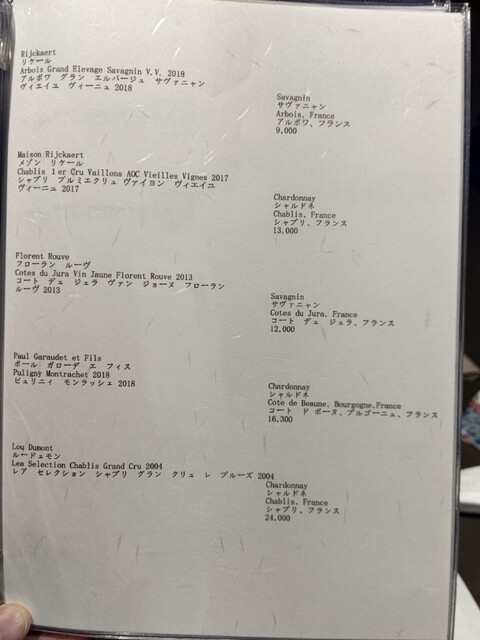 Rijckaert
リケール
Arbois Grand Elevage Savagnin V.V. 2018
アルボワ グラン エルバージュ サヴァニャン
ヴィエイユ ヴィーニュ 2018
Savagnin
サヴァニャン
Arbois, France
アルボワ、フランス
9,000
Maison Rijckaert
メゾン リケール
Chablis 1er Cru Vaillons AOC Vieilles Vignes 2017
シャブリ プルミエクリュ ヴァイヨン ヴィエイユ
ヴィーニュ 2017
Chardonnay
シャルドネ
Chablis, France
シャブリ、フランス
13,000
Florent Rouve
フローラン ルーヴ
Cotes du Jura Vin Jaune Florent Rouve 2013
コート デュ ジュラ ヴァン ジョーヌ フローラン
ルーヴ 2013
Savagnin
サヴァニャン
Cotes du Jura, France
コート デュ ジュラ、フランス
12,000
Paul Garaudet et Fils
ポール ガローデ エ フィス
Puligny Montrachet 2018
ピュリニィ モンラッシェ 2018
Chardonnay
シャルドネ
Cote de Beaune, Bourgogne,France
コート ド ボーヌ、ブルゴーニュ、フランス
16,300
Lou Dumont
ルードュモン
Lea Selection Chablis Grand Cru 2004
レア セレクション シャブリ グラン クリュ レ ブルーズ 2004
Chardonnay
シャルドネ
Chablis, France
シャブリ、フランス
24,000